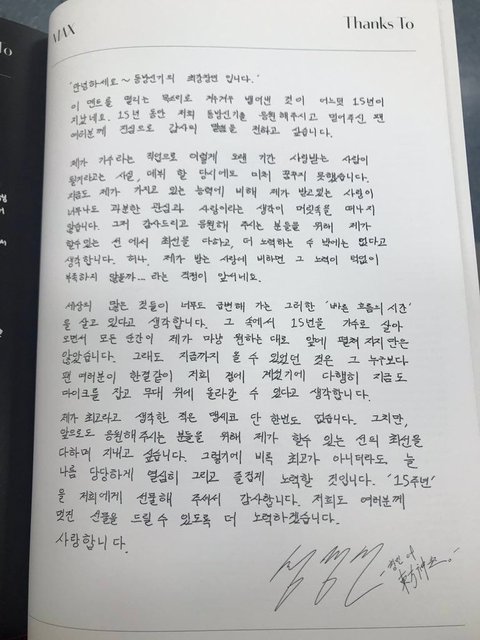 To
MAX
Thanks To
'안녕하세요~ 동방신기의 최강창민 입니다.'
이 멘트를 떨리는 목소리로 겨우겨우 뱉어낸 것이 어느덧 15년이
지났네요. 15년 동안 저희 동방신기를 응원해주시고 믿어주신 팬
여러분께 진심으로 감사의 말씀을 전하고 싶습니다.
제가 가수라는 직업으로 이렇게 오랜 기간 사랑받는 사람이
될거라고는 사실, 데뷔 할 당시에도 미처 꿈꾸지 못했습니다.
지금도 제가 가지고 있는 능력에 비해 제가 받고있는 사랑이
너무나도 과분한 관심과 사랑이라는 생각이 머릿속을 떠나지
않습니다. 그저 감사드리고 응원해 주시는 분들을 위해 제가
할수있는 선 에서 최선을 다하고, 더 노력하는 수 밖에는 없다고
생각합니다. 허나, 제가 받는 사랑에 비하면 그 노력이 턱없이
부족하지 않을까... 라는 걱정이 앞서네요.
세상의 많은 것들이 너무도 급변해 가는 그러한 '빠른 흐름의 시간'
을 살고 있다고 생각합니다. 그 속에서 15년을 가수로 살아
오면서 모든 순간이 제가 마냥 원하는 대로 앞에 펼쳐 지지만은
않았습니다. 그래도 지금까지 올 수 있었던 것은 그 누구보다
팬 여러분이 한결같이 저희 곁에 계셨기에 다행히 지금도
마이크를 잡고 무대 위에 올라갈 수 있다고 생각합니다.
제가 최고라고 생각한 적은 맹세코 단 한번도 없습니다. 그치만,
앞으로도 응원해 주시는 분들을 위해 제가 할수 있는 선의 최선을
다하며 지내고 싶습니다. 그렇기에 비록 최고가 아니더라도 늘
나름 당당하게 열심히 그리고 즐겁게 노력할 것입니다. '15주년'
을 저희에게 선물해 주셔서 감사합니다. 저희도 여러분께
멋진 선물을 드릴 수 있도록 더 노력하겠습니다.
사랑합니다.
東方神起